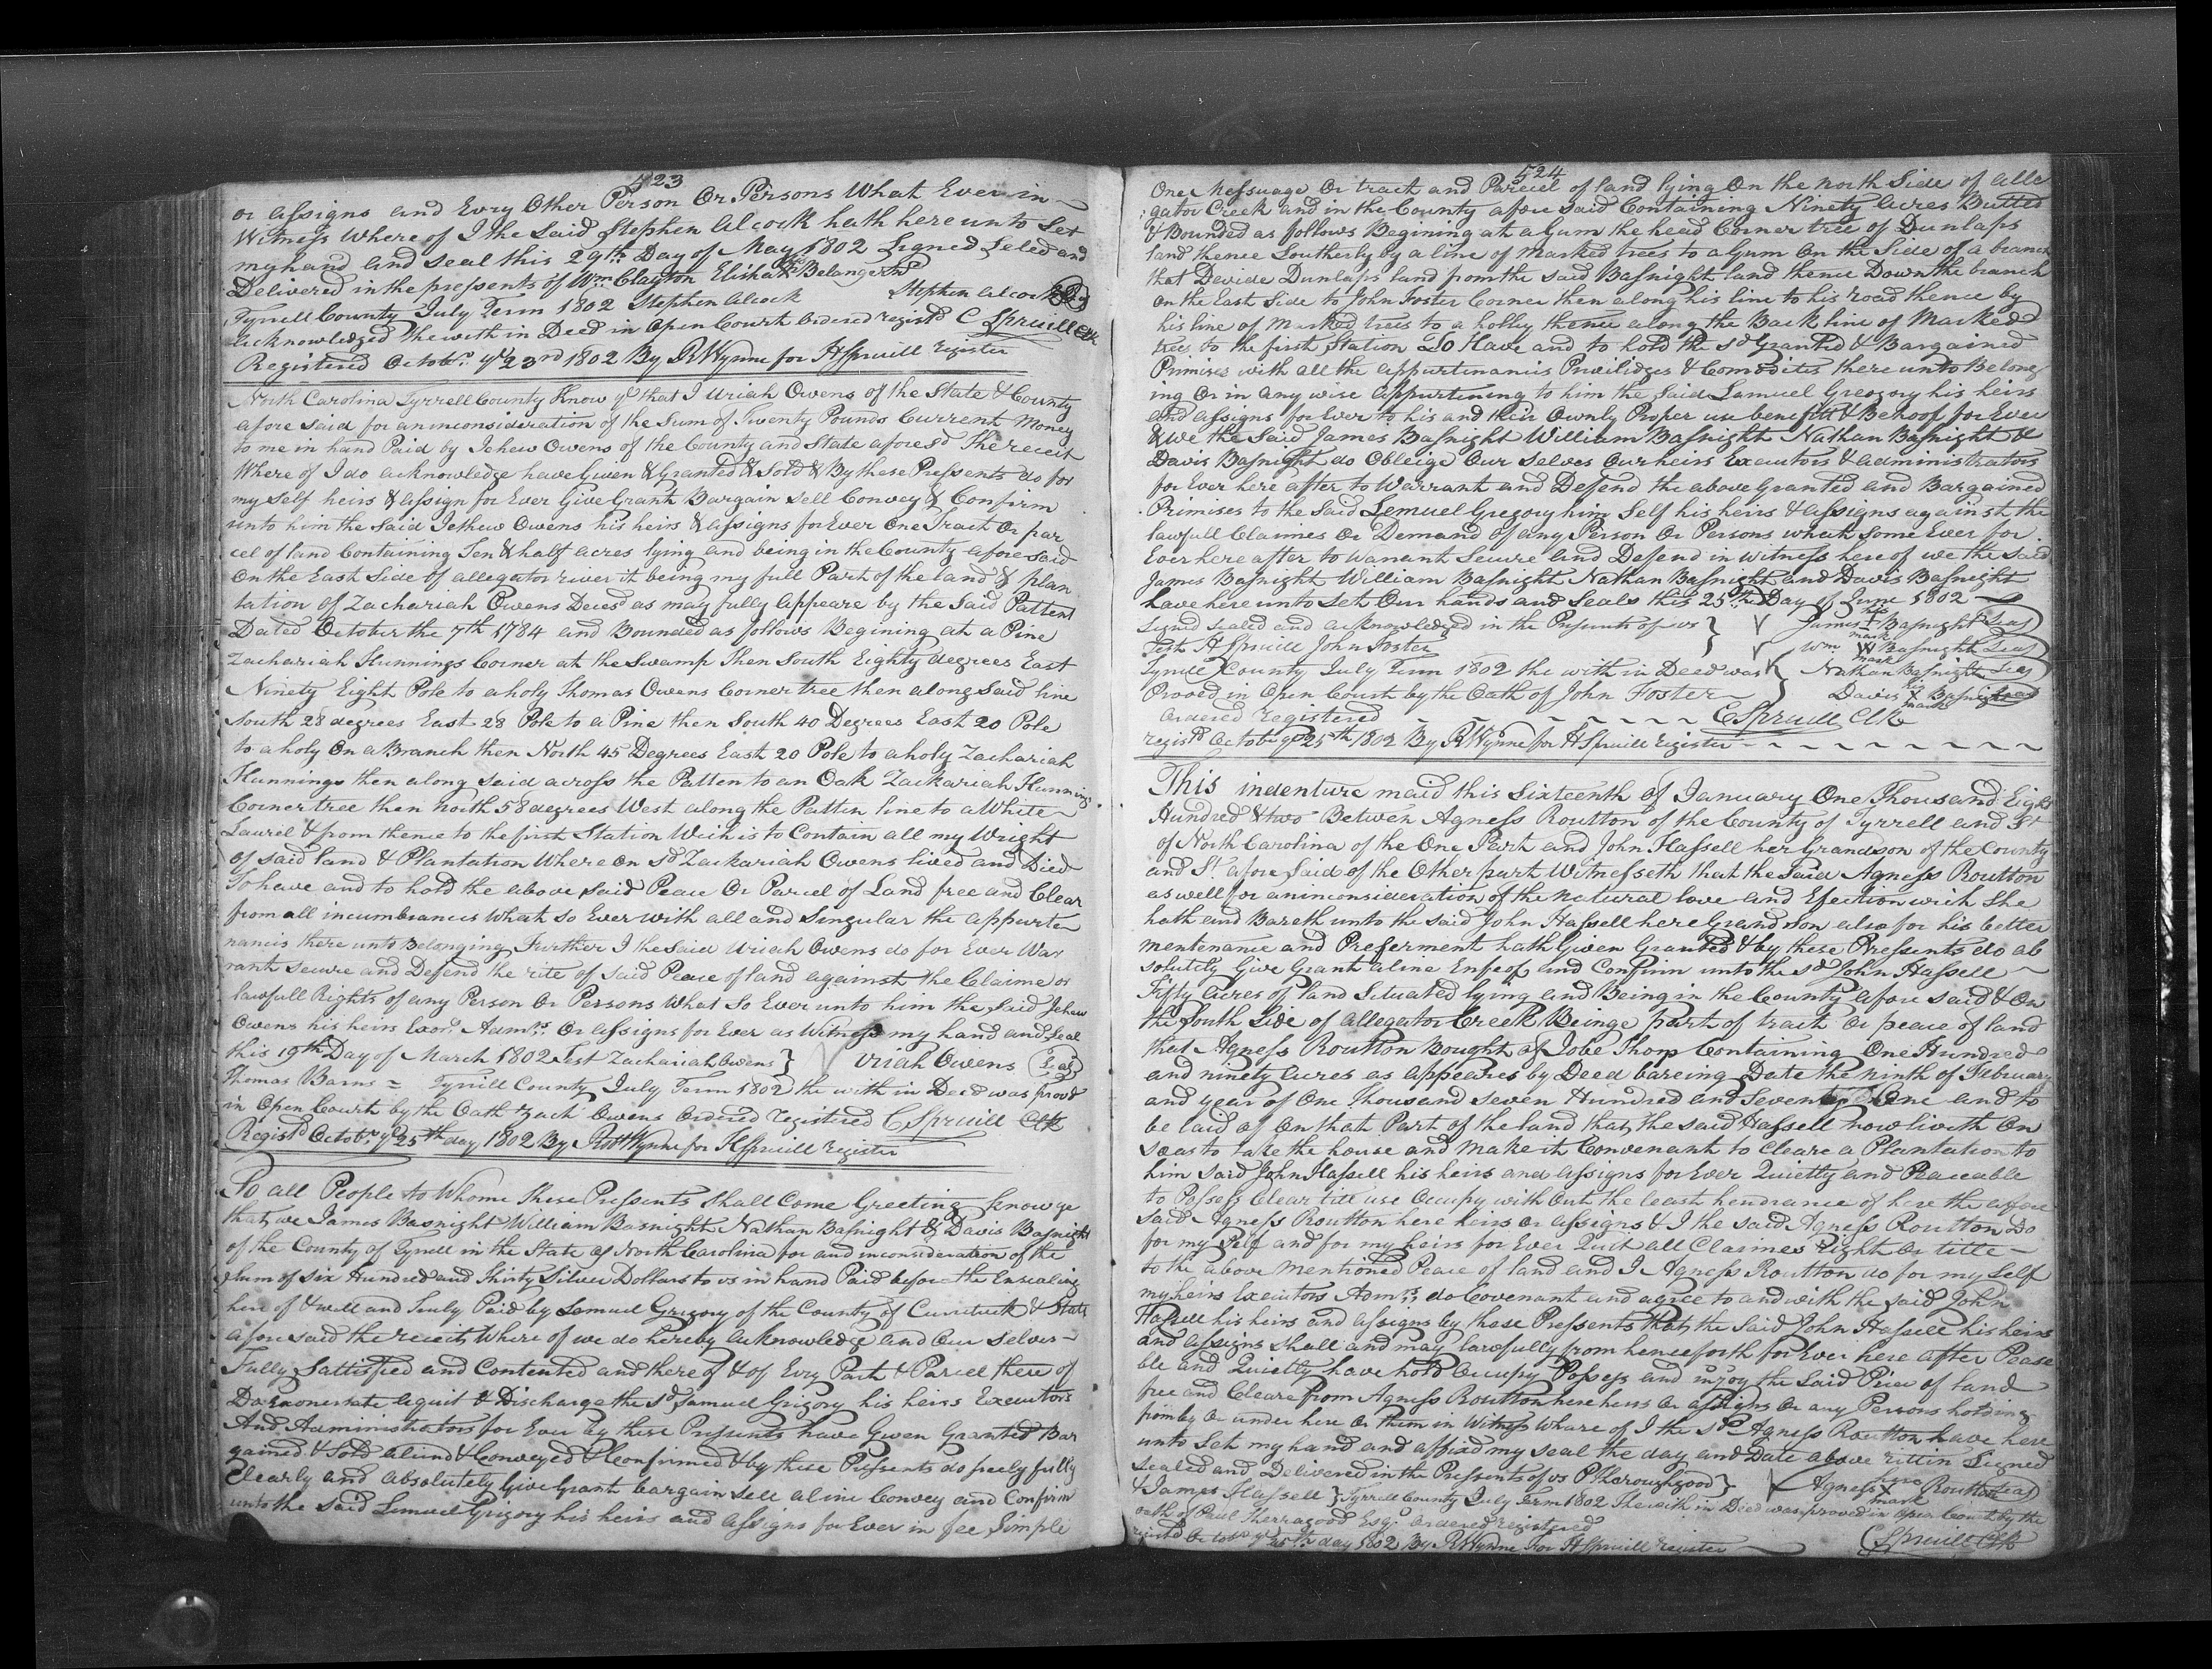 523
or assigns and Evry Other Person Or Persons What Ever in
Witness Where of I the Said Stephen Alcock hath here unto Set
my hand and Seal this 29th Day of May 1802 Signed Seled and
Delivered in the pressents of Wm Clayton Elisha Belange
Stephen Alcock
Tyrrell County July Term 1802 Stephen Alcock
acknowledged the with in Deed in Open Court Ordered registd C Spruill Clk
Registered Octobr ye 23rd 1802 By R Wynne for H Spruill register
North Carolina Tyrrell County Know ye that I Uriah Owens of the State & County
afore said for an inconsideration of the Sum of Twenty Pounds Current Money
to me in hand Paid by Jehew Owens of the County and State aforesd the receit
Where of I do acknowledge have Given & Granted & Sold & By these Pressents do for
my Self heirs & assign for Ever Give Grant Bargain Sell Convey & Confirm
unto him the Said Jethew Owens his heirs & assigns for Ever One Tract Or par
cel of land Containing Ten & half acres lying and being in the County afore said
On the East Side of allegator river it being my full Part of the land & plan
tation of Zachariah Owens Decesd as may fully appeare by the Said Pattent
Dated October the 7th 1784 and Bounded as follows Begining at a Pine
Zachariah Hunnings Corner at the Swamp Then South Eighty degrees East
Ninety Eight Pole to a holy Thomas Owens Corner tree then along Said line
South 28 degrees East 28 Pole to a Pine then South 40 Degrees East 20 Pole
to a holy On a Branch then North 45 Degrees East 20 Pole to a holy Zachariah
Hunnings then along Said across the Patten to an Oak Zackariah Hunnings
Corner tree then north 58 degrees West along the Patten line to a White
Laurel & from thence to the first Station Wich is to Contain all my Wright
of said land & Plantation Where on Sd Zackariah Owens lived and Died
To have and to hold the above said Peace Or Parcel of Land free and Clear
from all incumbrances What so Ever with all and Singular the appurte
nancis there unto Belonging Further I the Said Uriah Owens do for Ever War
rant Secure and Defend the rite of Said Peace of land against the Claime or
lawfull Rights of any Person Or Persons What So Ever unto him the Said Jehew
Owens his heirs Exors Admrs Or assigns for Ever as Witness my hand and Seal
this 19th Day of March 1802 Test Zachariah Owens } Uriah Owens (Seal)
Thomas Barns = Tyrrill County July Term 1802 the with in Deed was provd
in Open Court by the Oath Zach Owens Ordered registered C Spruill Clk
Registd Octobr ye 25th day 1802 By Wynne for H Spruill register
To all People to Whome these Pressents Shall Come Greeting Know ye
that we James Basnight William Basnight Nathan Basnight & Davis Basnight
of the County of Tyrrell in the State of North Carolina for and inconsideration of the
Sum of six Hundred and Thirty Silver Dollars to us in hand Paid before the Ensealing
here of & well and Truly Paid by Lemuel Grigory of the County of Currituck & State
afore said the receits Where of we do hereby acknowledge and Our Selves
Fully Sattisfied and Contented and there of & of Evry Part & Parcel there of
Do Exonerate aquit & Discharge the Sd Samuel Grigory his heirs Executors
And Administrators for Ever by these Pressents have Given Granted Bar
gained & Sold aliend & Conveyed & Confirmed & by these Pressents do freely fully
Clearly and absolutely Give Grant bargain Sell aline Convey and Confirm
unto the Said Lemuel Grigory his heirs and assigns for Ever in fee Simple
524
One Messuage Or tract and Parciel of land lying On the north Side of alle
gator Creek and in the County afore said Containing Ninety acres Butted
& Bounded as follows Begining at a Gum the head Corner tree of Dunlaps
land thence Southerly by a line of Marked trees to a Gum On the Side of a branch
that Devide Dunlaps land from the said Basnight land thence Down the branch
On the East Side to John Foster Corner then along his line to his road thence by
his line of Marked trees to a holly thence along the Back line of Marked
trees to the first Station To Have and to hold the sd Granted & Bargained
Primises with all the appurtinancis Privilidges & Comodites there unto Belong
ing Or in any wise appurtening to him the Said Lamuel Gregory his heirs
and assigns for Ever to his and their Ownly Proper use benefitt & Behoof for Ever
& we the Said James Basnight William Basnight Nathan Basnight &
Davis Basnight do Obleige Our Selves Our heirs Executors & administrators
for Ever here after to Warrant and Defend the above Granted and Bargained
Primises to the Said Lemuel Gregory him Self his heirs & assigns against the
lawfull Claimes Or Demand of any Person Or Persons what some Ever for
Ever here after to Warrant Secure and Defend in witness here of we the Said
James Basnight William Basnight Nathan Basnight and Davis Basnight
have here unto Set Our hands and Seals this 25th Day of June 1802
Signed Sealed and acknowledged in the Presents of us } James his mark Basnight Seal
Test H Spruill John Foster Wm mark Basnight Seal
Tyrrell County July Term 1802 the with in Deed was } Nathan Basnight Seal
Proved in Open Court by the Oath of John Foster Davis his X mark Basnight Seal
Ordered registered C Spruill Clk
registd Octobr ye 25th 1802 By R Wynne for H Spruill register
This indenture maid this Sixteenth of January One Thousand Eight
Hundred & two Betwen Agness Routton of the County of Tyrrell and St
of North Carolina of the One Part and John Hassell her Grandson of the County
and St afore Said of the Other part Witnesseth that the Said Agness Routton
as well for an inconsideration of the natural love and Efection wich She
hath and Bareth unto the Said John Hassell here Grand Son also for his better
mentenance and Preferment hath Given Granted & by these Pressents do ab
solutely Give Grant aline Enfeof and Confirm unto the sd John Hassell
Fifty acres of land Situated lying and Being in the County afore said & On
the South Side of allegator Creek Beinge part of tract or peace of land
that Agness Routton Bought of Jobe Thorp Containing One Hundred
and ninety acres as appeares by Deed bareing Date the ninth of February
and year of One Thousand Seven Hundred and Seventy One and to
be laid of On that Part of the land that the said Hassell now liveth On
So as to take the house and Make it Convenant to Cleare a Plantation to
him said John Hassell his heirs and assigns for Ever Quietly and Peaceable
to Possess Clear till use Occupy with Out the least hendrance of here the afore
Said Agness Routton here heirs or assigns & I the said Agness Routton Do
for my Self and for my heirs for Ever Quit all Claimes Right Or title
to the above mentioned Peace of land and I Agness Routton do for my Self
my heirs Executors Admrs do Covenant and agree to and with the Said John
Hassell his heirs and assigns by these Pressents that the Said John Hassell his heirs
and assigns Shall and may lawfully from henceforth for Ever here after Pease
ble and Quietly have hold Occupy Possess and injoy the Said Piece of land
free and Cleare from Agness Routton here heirs Or assigns Or any Persons holding
from by Or under here Or them in Witness whare of I the sd Agness Routton have here
unto Set my hand and affixd my Seal the day and Date above rittin Signed
Sealed and Delivered in the Pressents of us P Thoroughgood } Agness here X mark Routton Seal
& James Hassell } Tyrrell County July Term 1802 The with in Deed was proved in Open Court by the
oath of Paul Therragood Esqr Ordered registered C Spruill Clk
registd Octobr ye 25th day 1802 By R Wynne for H Spruill register